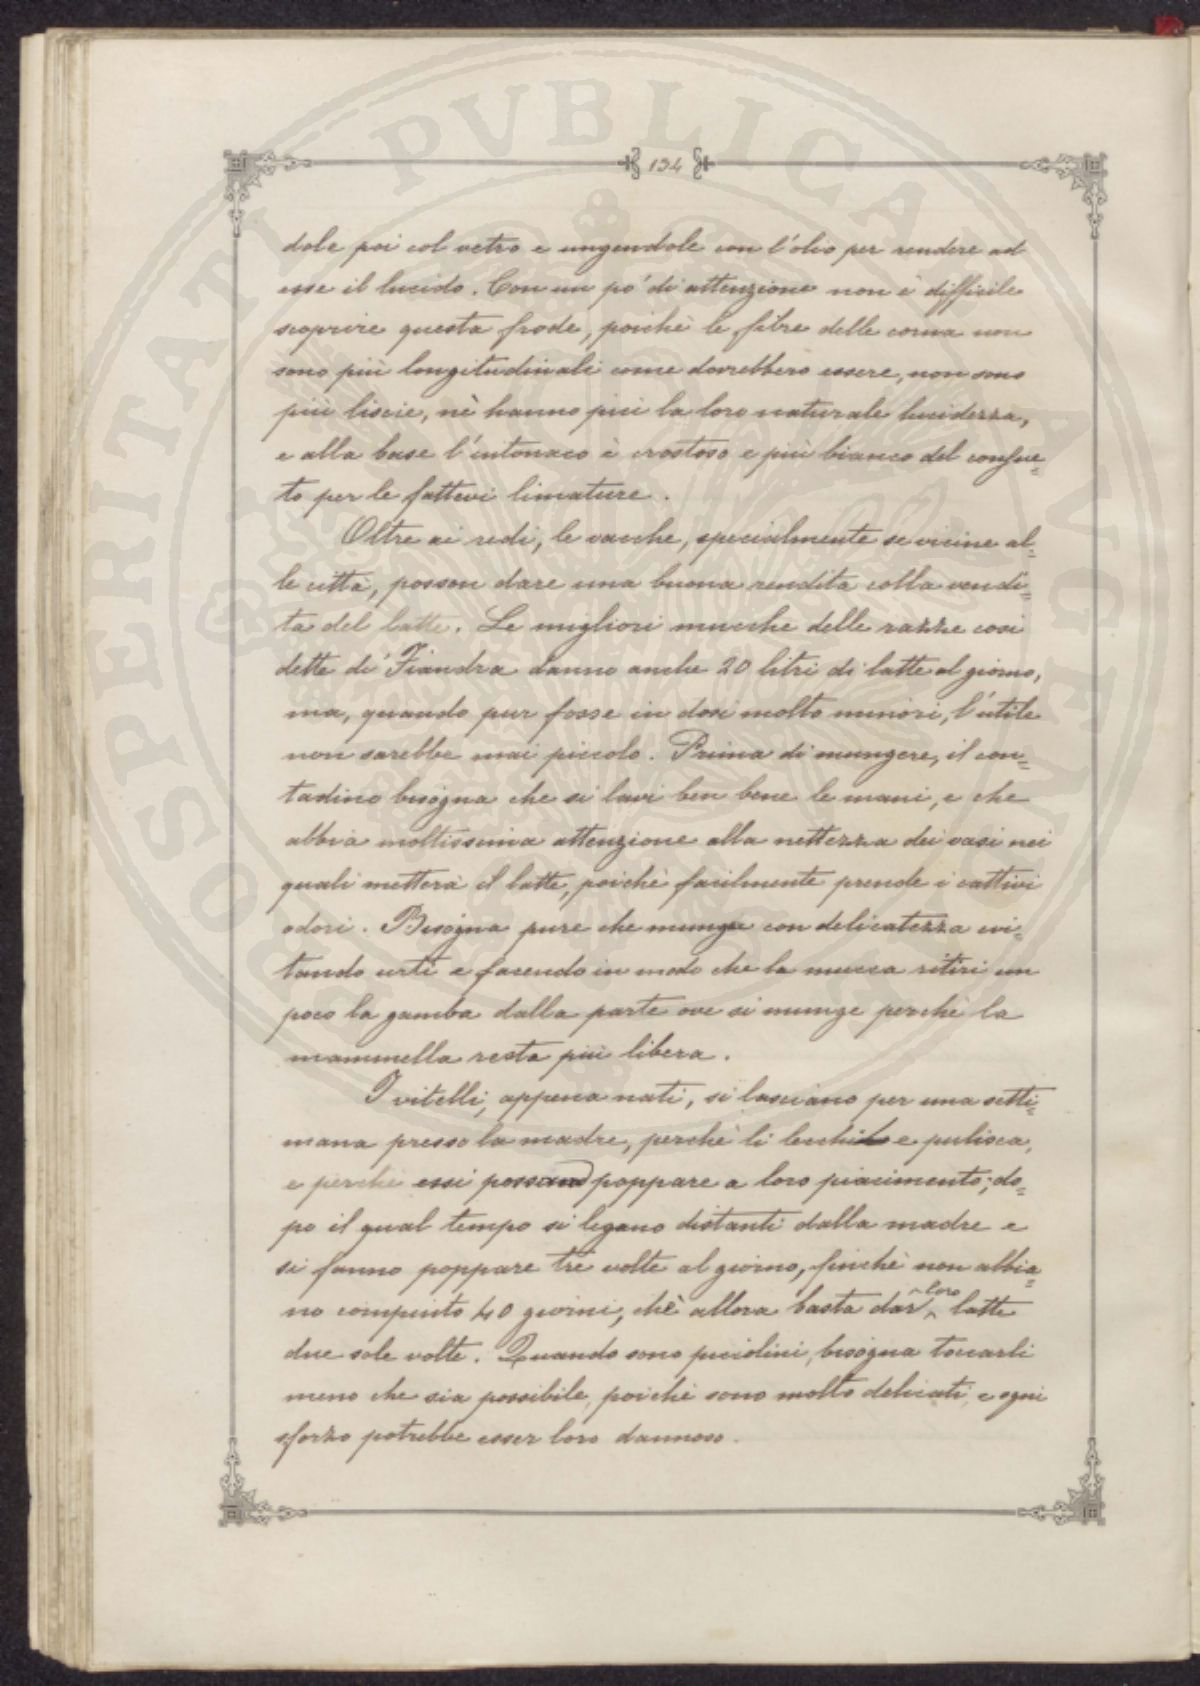 134
dole poi col vetro e ungendole con l'olio per rendere ad
esse il lucido. Con un po' di attenzione non è difficile
scoprire questa frode, poichè le fibre delle corna non
sono più longitudinali come dovrebbero essere, non sono
più liscie, nè hanno più la loro naturale lucidezza,
e alla base l'intonaco è crostoso e più bianco del consue=
to per le fattevi limature.
Oltre ai redi, le vacche, specialmente se vicine al=
le città, posson dare una buona rendita colla vendi=
ta del latte. Le migliori mucche delle razze così
dette di Fiandra danno anche 20 litri di latte al giorno,
ma, quando pur fosse in dosi molto minori, l'utile
non sarebbe mai piccolo. Prima di mungere, il con=
tadino bisogna che si lavi ben bene le mani, e che
abbia moltissima attenzione alla nettezza dei vasi nei
quali metterà il latte, poichè facilmente prende i cattivi
odori. Bisogna pure che munga con delicatezza evi=
tando urti e facendo in modo che la mucca ritiri un
poco la gamba dalla parte ove si munge perchè la
mammella resta più libera.
I vitelli, appena nati, si lasciano per una setti=
mana presso la madre, perchè li lecchi e pulisca,
e perchè essi possano poppare a loro piacimento; do=
po il qual tempo si legano distanti dalla madre e
si fanno poppare tre volte al giorno, finchè non abbia=
no compiuto 40 giorni, chè allora basta dar loro latte
due sole volte. Quando sono piccolini, bisogna toccarli
meno che sia possibile, poichè sono molto delicati, e ogni
sforzo potrebbe esser loro dannoso.
PROSPERITATI PVBLICAE AVGENDAE